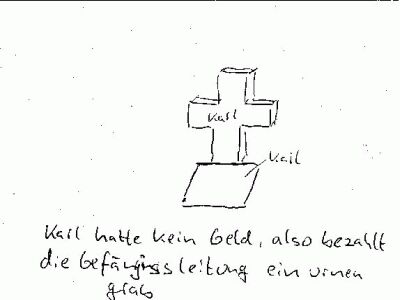 Karl
Karl
Karl hatte kein Geld, also bezahlt
die Gefängnisleitung ein urnen
grab